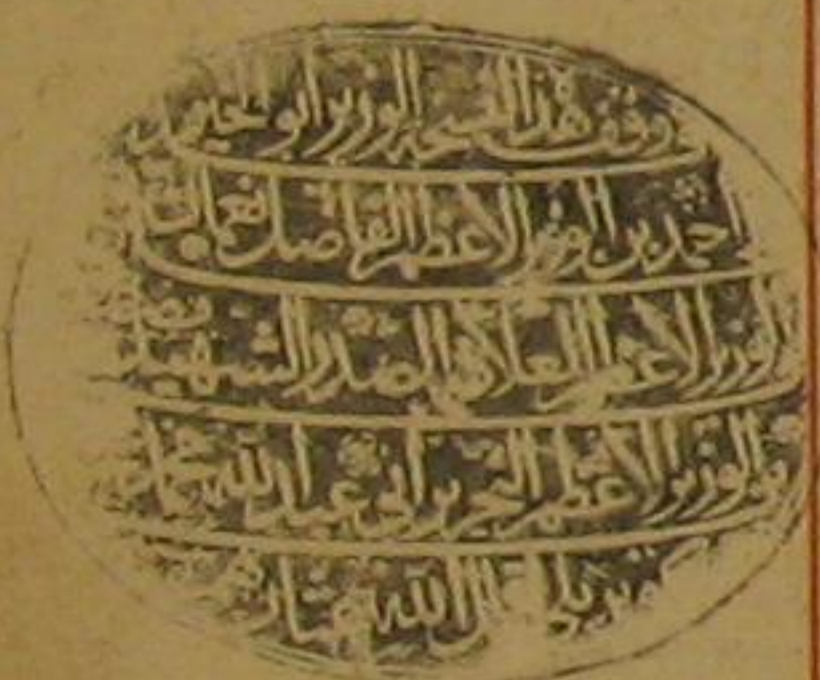 وقف هذا النسخة الوزير ابو الخير
احمد بن الوزير الاعظم الفاضل نعمان
بن الوزير الاعظم العلامة الصدر الشهيد
بن الوزير الاعظم النحرير ابي عبد الله محمد
الله